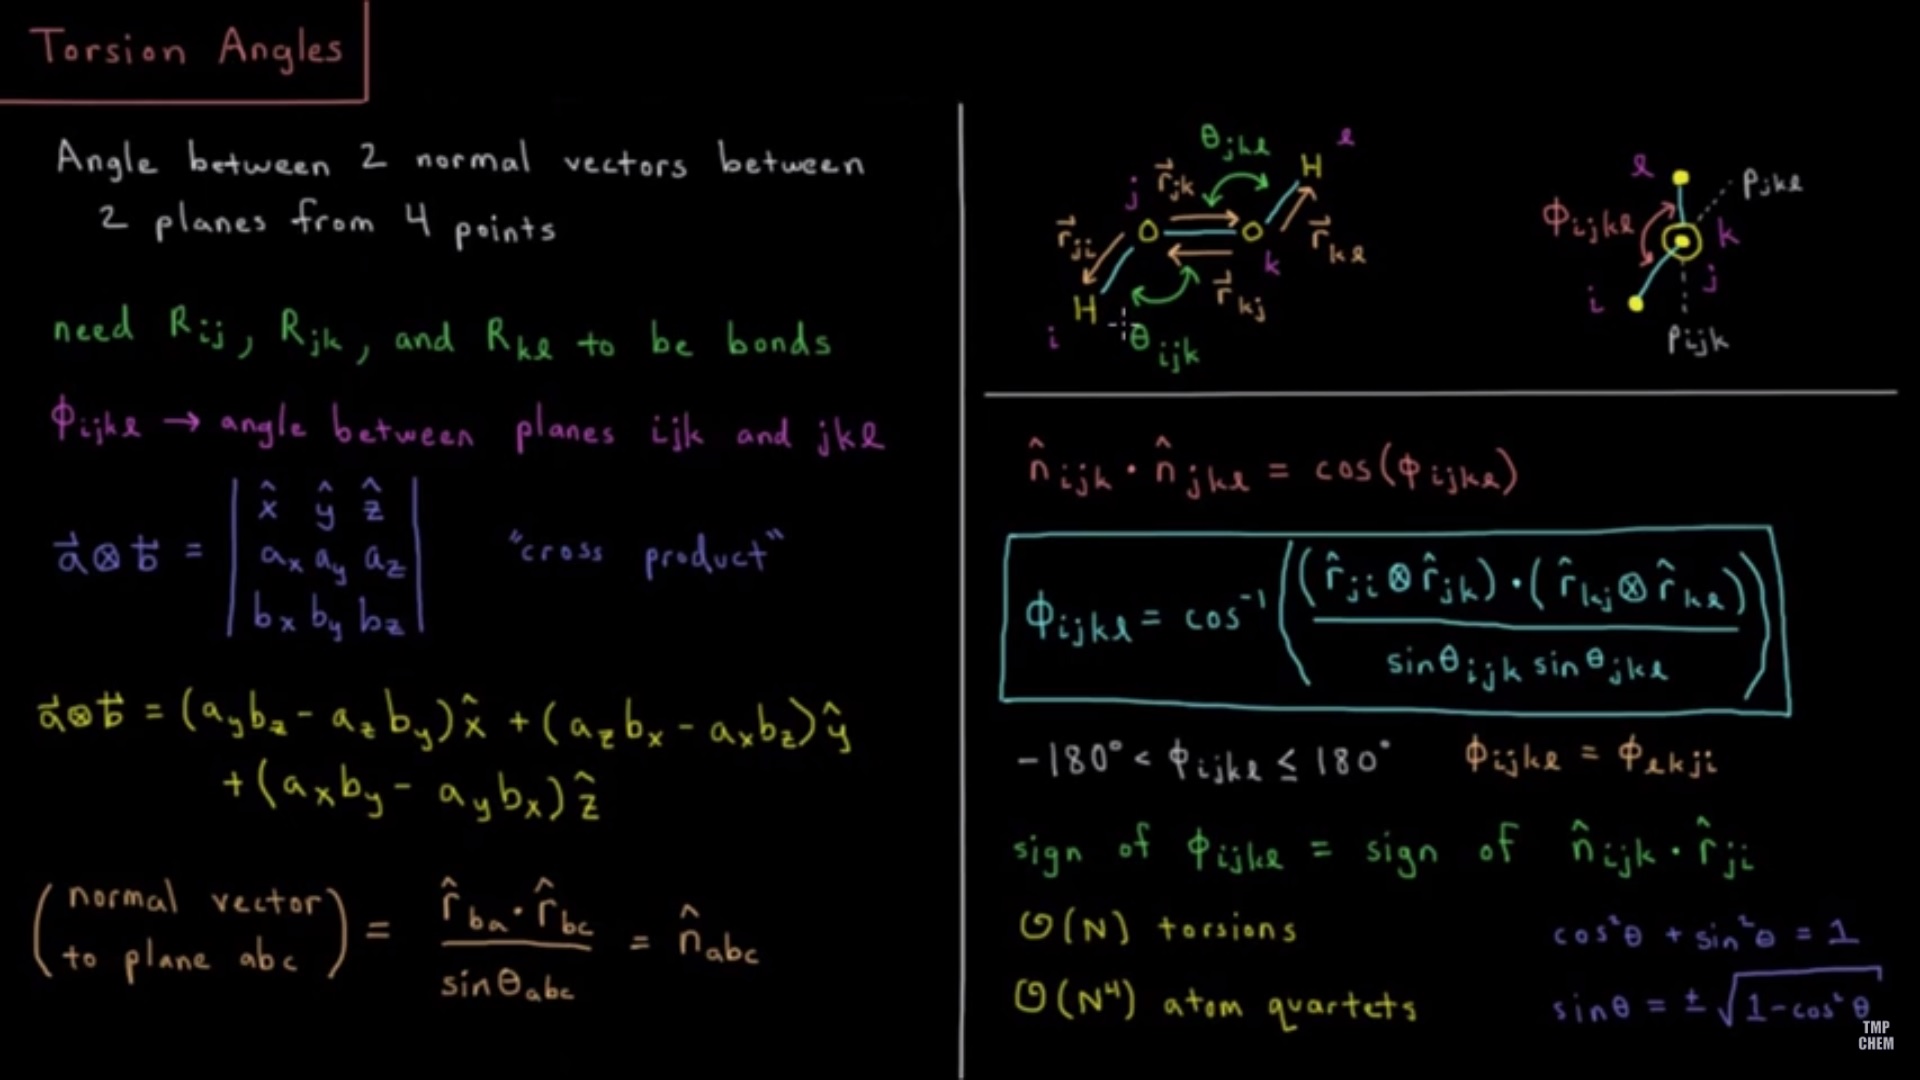 Torsion Angles
Angle between 2 normal vectors between
2 planes from 4 points
need Rij, Rjk, and Rkl to be bonds
ϕijkl → angle between planes ijk and jkl
a⃗ ⊗ b⃗ = | x̂ ŷ ẑ |
| ax ay az |
| bx by bz |
"cross product"
a⃗ ⊗ b⃗ = (aybz - azby)x̂ + (azbx - axbz)ŷ
+ (axby - aybx)ẑ
(normal vector to plane abc) = r̂ba · r̂bc / sinθabc = n̂abc
θjkl
H l
j r⃗jk
r⃗ji O O r⃗kl
k
H r⃗kj
i θijk
l Pjkl
ϕijkl k
j
i
Pijk
n̂ijk · n̂jkl = cos(ϕijkl)
ϕijkl = cos⁻¹((r̂ji ⊗ r̂jk) · (r̂kj ⊗ r̂kl) / sinθijk sinθjkl)
-180° < ϕijkl ≤ 180° ϕijkl = ϕlkji
sign of ϕijkl = sign of n̂ijk · r̂ji
O(N) torsions cos²θ + sin²θ = 1
O(N⁴) atom quartets sinθ = ± √1-cos²θ
TMP
CHEM